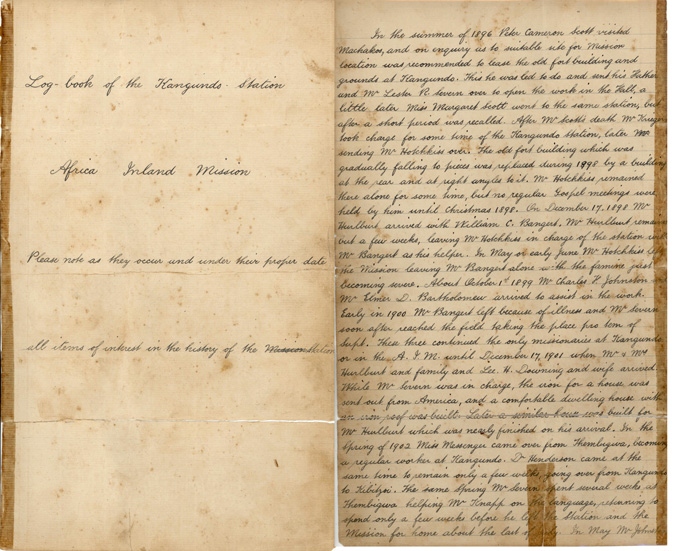 Log-book of the Kangundo-Station
Africa Inland Mission
Please note as they occur and under their proper date
all items of interest in the history of the Mission Station
In the summer of 1896 Peter Cameron Scott visited
Machakos, and on inquiry as to suitable site for Mission
location was recommended to lease the old fort building and
grounds at Kangundo. This he was led to do and sent his Father
and Mr Lester R. Severn over to open the work in the Fall, a
little later Miss Margaret Scott went to the same station, but
after a short period was recalled. After Mr Scott's death Mr Krieger
took charge for some time of the Kangundo Station, later
sending Mr Hotchkiss over. The old fort building which was
gradually falling to pieces was replaced during 1898 by a building
at the rear and at right angles to it. Mr Hotchkiss remained
there alone for some time, but no regular Gospel meetings were
held by him until Christmas 1898. On December 17, 1898 Mr
Hurlburt arrived with William C. Bangert. Mr Hurlburt remain
but a few weeks, leaving Mr Hotchkiss in charge of the station
Mr Bangert as his helper. In May or early June Mr Hotchkiss left
the Mission leaving Mr Bangert alone with the famine fast
becoming severe. About October 1st 1899 Mr Charles F. Johnston
Mr Elmer D. Bartholomew arrived to assist in the work.
Early in 1900 Mr Bangert left because of illness and Mr Severn
soon after reached the field taking the place pro tem of
Supt. These three continued the only missionaries at Kangundo
or in the A. I. M. until December 17, 1901 when Mr & Mrs
Hurlburt and family and Lee H. Downing and wife arrived
While Mr Severn was in charge, the iron for a house was
sent out from America, and a comfortable dwelling house with
an iron roof was built. Later a similar house was built for
Mr Hurlburt which was nearly finished on his arrival. In the
Spring of 1902 Miss Messenger came over from Thembigwa, becoming
a regular worker at Kangundo. Dr Henderson came at the
same time to remain only a few weeks, going over from Kangundo
to Kilitzoi. The same Spring Mr Severn spent several weeks at
Thembigwa helping Mr Knapp on the language, returning to
spend only a few weeks before he left the Station and the
Mission for home about the last of July. In May Mr Johnston